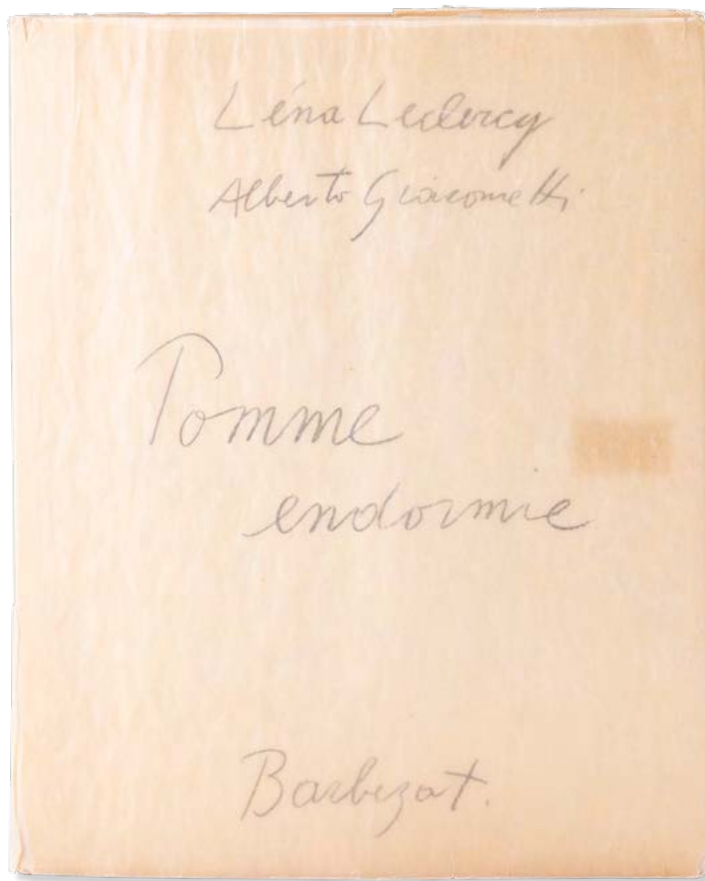 Léna Leclercq
Alberto Giacometti
Pomme
endormie
Barbezat.